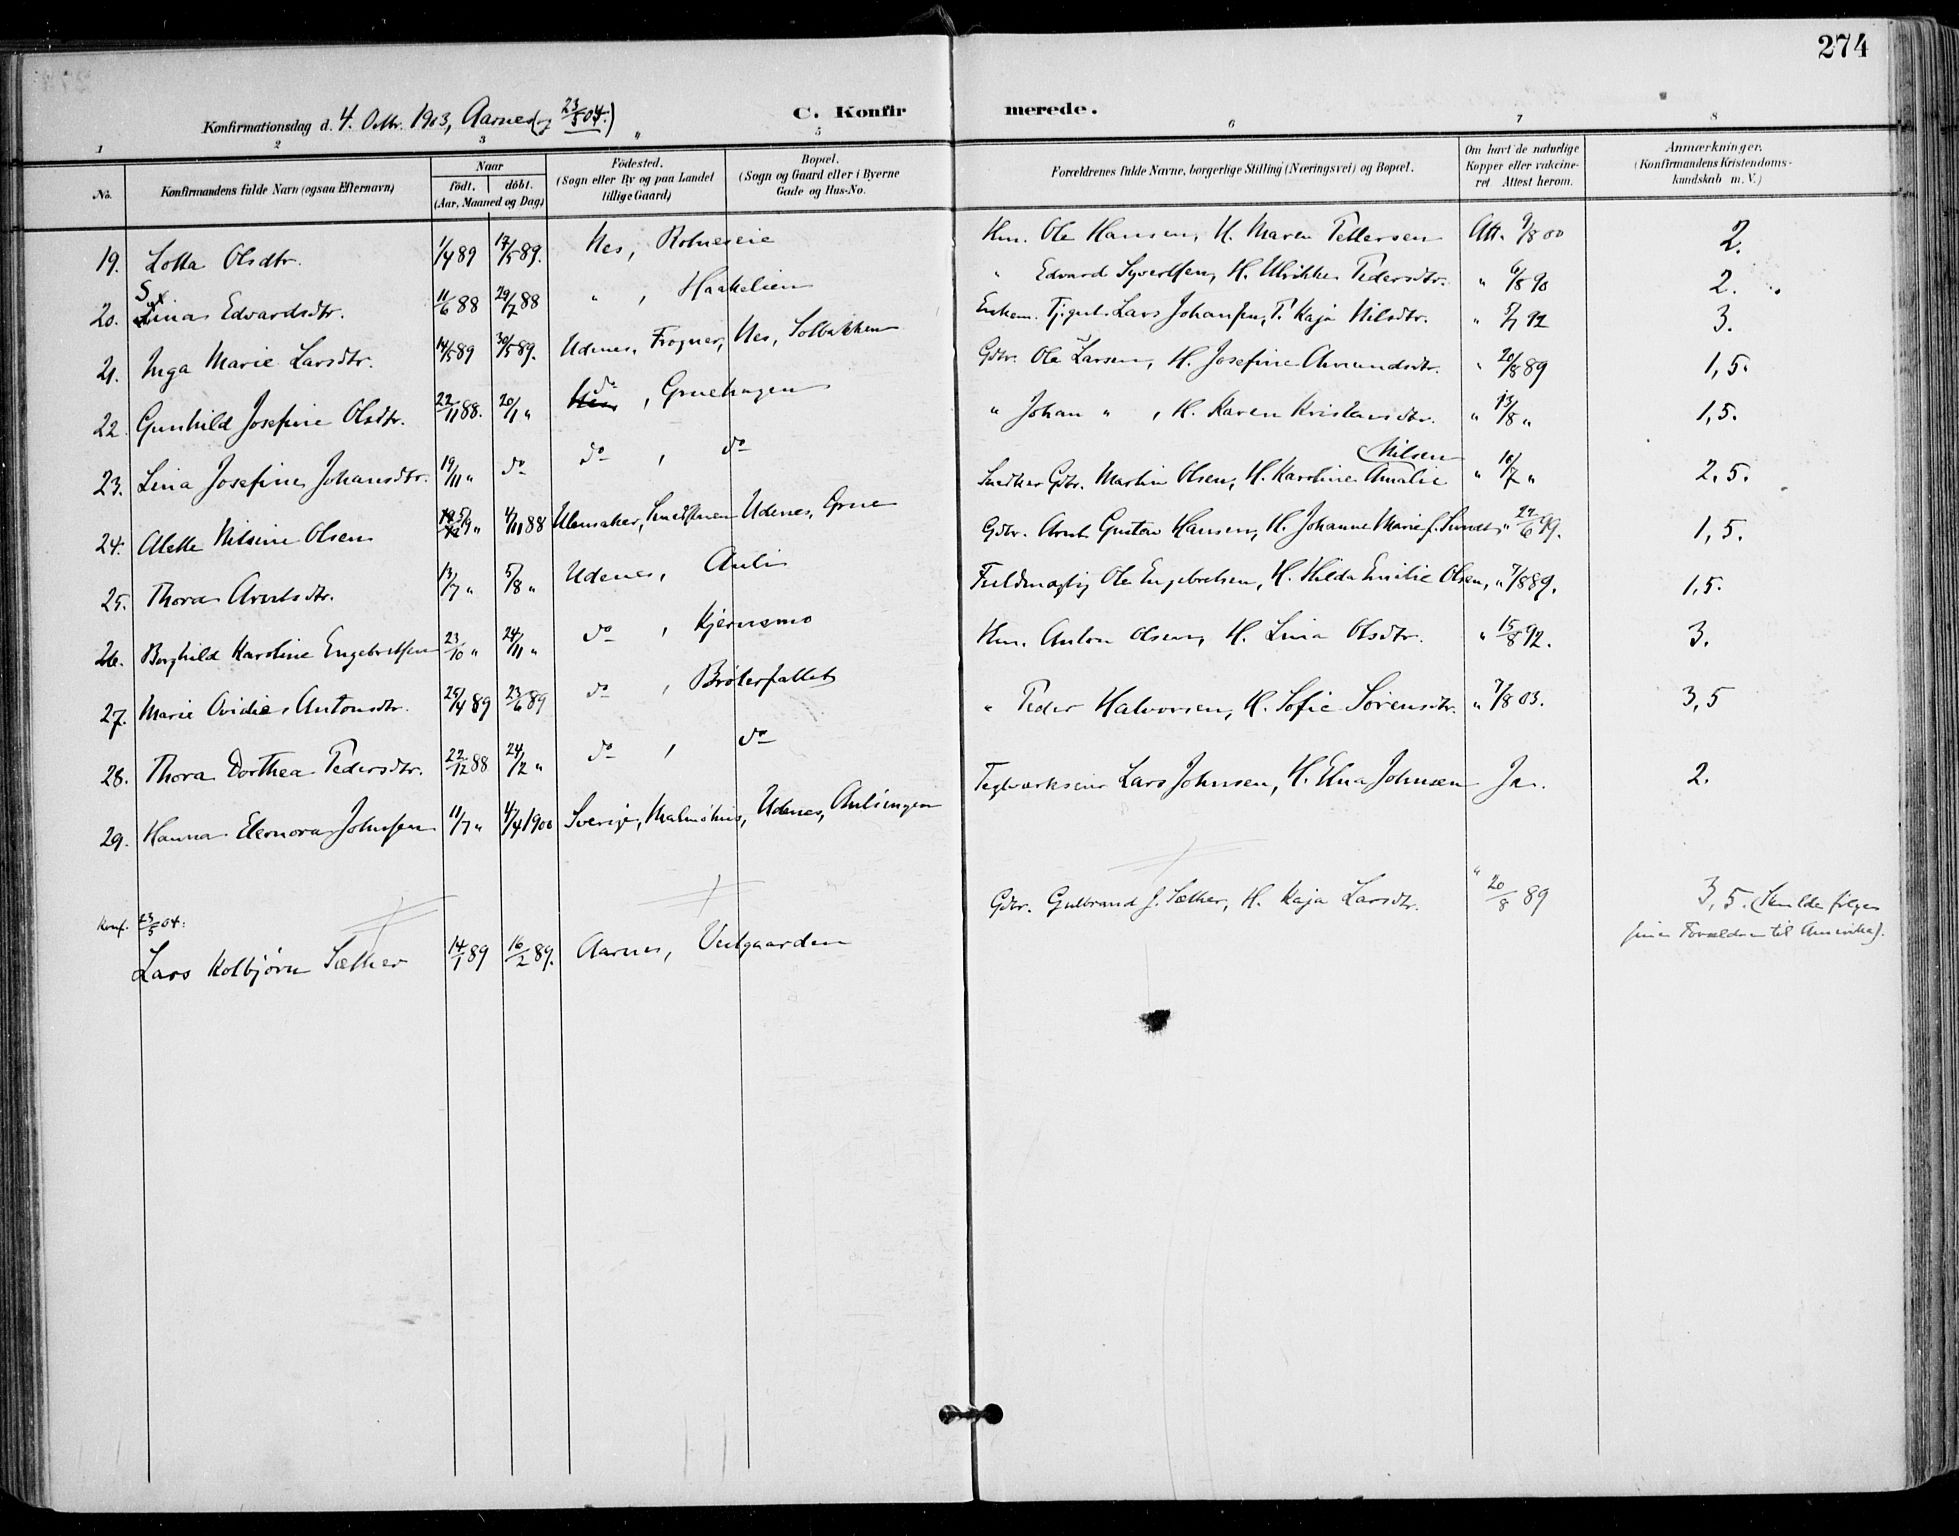 274
Konfirmationsdag d. 4. Oktbr. 1903, Aarnes (og 23/5 04.)
C. Konfirmerede.
1 2 3 " 5 6 7 8
No.
Konfirmandens fulde Navn (ogsaa Efternavn)
Naar
födt. döbt.
(Aar, Maaned og Dag)
Födested.
(Sogn eller By og paa Landet
tillige Gaard)
Bopæl.
(Sogn og Gaard eller i Byerne
Gade og Hus-No.
Forældrenes fulde Navne, borgerlige Stilling (Næringsvei) og Bopæl.
Om havt de naturlige
Kopper eller vakcine-
ret Attest herom.
Anmærkninger.
(Konfirmandens Kristendoms-
kundskab m. V.)
19. Lotta Olsdtr. 1/4 89 17/5 89. Nes, Rolneseie Hm. Ole Hansen, H. Maren Pettersen Att. 9/8 00 2.
20. Edvardsdtr. 11/6 88 29/7 88 " , Haakelien " Edvard Syvertsen, H. Ulrikke Pedersdtr. " 6/8 90 2.
21. Inga Marie Larsdtr. 14/5 89 30/5 89. Udenes, Frogner, Nes, Solbakken Enkem. Lars Johansen, T. Kaja Nilsdtr. " 92 3.
22. Gunhild Josefine Olsdtr. 22/11 88. 20/1 " do , Gruehagen Gbr. Ole Larsen, H. Josefine Amundsdtr. " 20/8 89 1,5.
23. Lina Josefine Johansdtr. 19/11 " do do , do " Johan " , H. Karen Kristiansdtr. " 13/8 " 1,5.
24. Alette Nilsine Olsen 9 " 4/11 88 Ullensaker, Udenes, Grue Snedker Gbr. Martin Olsen, H. Karoline Amalie Nilsen " 10/7 " 2,5.
25. Thora Arntsdtr. 13/7 " 5/8 " Udenes, Auli Gbr. Arnt Gustav Hansen, H. Johanne Marie f. Sundt " 27/6 99. 1,5.
26. Borghild Karoline Engebretsen 23/10 " 24/11 " do , Kjernsmo Fuldmægtig Ole Engebretsen, H. Hilda Emilie Olsen, " 7/8 89. 1,5.
27. Marie Ovidie Antonsdtr. 25/4 89 23/6 89 do , Bröterfallet Hm. Anton Olsen, H. Lina Olsdtr. " 15/8 92. 3.
28. Thora Dorthea Pedersdtr. 22/12 88 24/2 " do , do " Peder Halvorsen, H. Sofie Sörensdtr. " 7/8 03. 3,5
29. Hanna Eleonora Johnsen 11/7 " 4/4 1900 Sverige, Malmöhus, Udenes, Auliengen Lars Johnsen, H. Elna Johnsen Ja. 2.
Konf. 23/5 04:
Lars Kolbjörn Sæther 14/1 89 16/2 89. Aarnes, Vestgaarden Gbr. Gulbrand J. Sæther, H. Kaja Larsdtr. " 20/8 89 3,5. (Skulde følge
sine Forældre til Amerika).